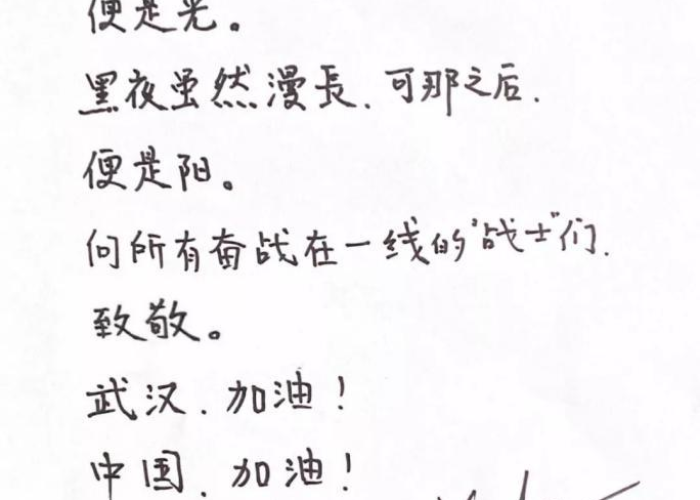 便是光。
黑夜虽然漫長,可那之后,
便是阳。
向所有奋战在一线的“战士”们,
致敬。
武汉,加油!
中国,加油!